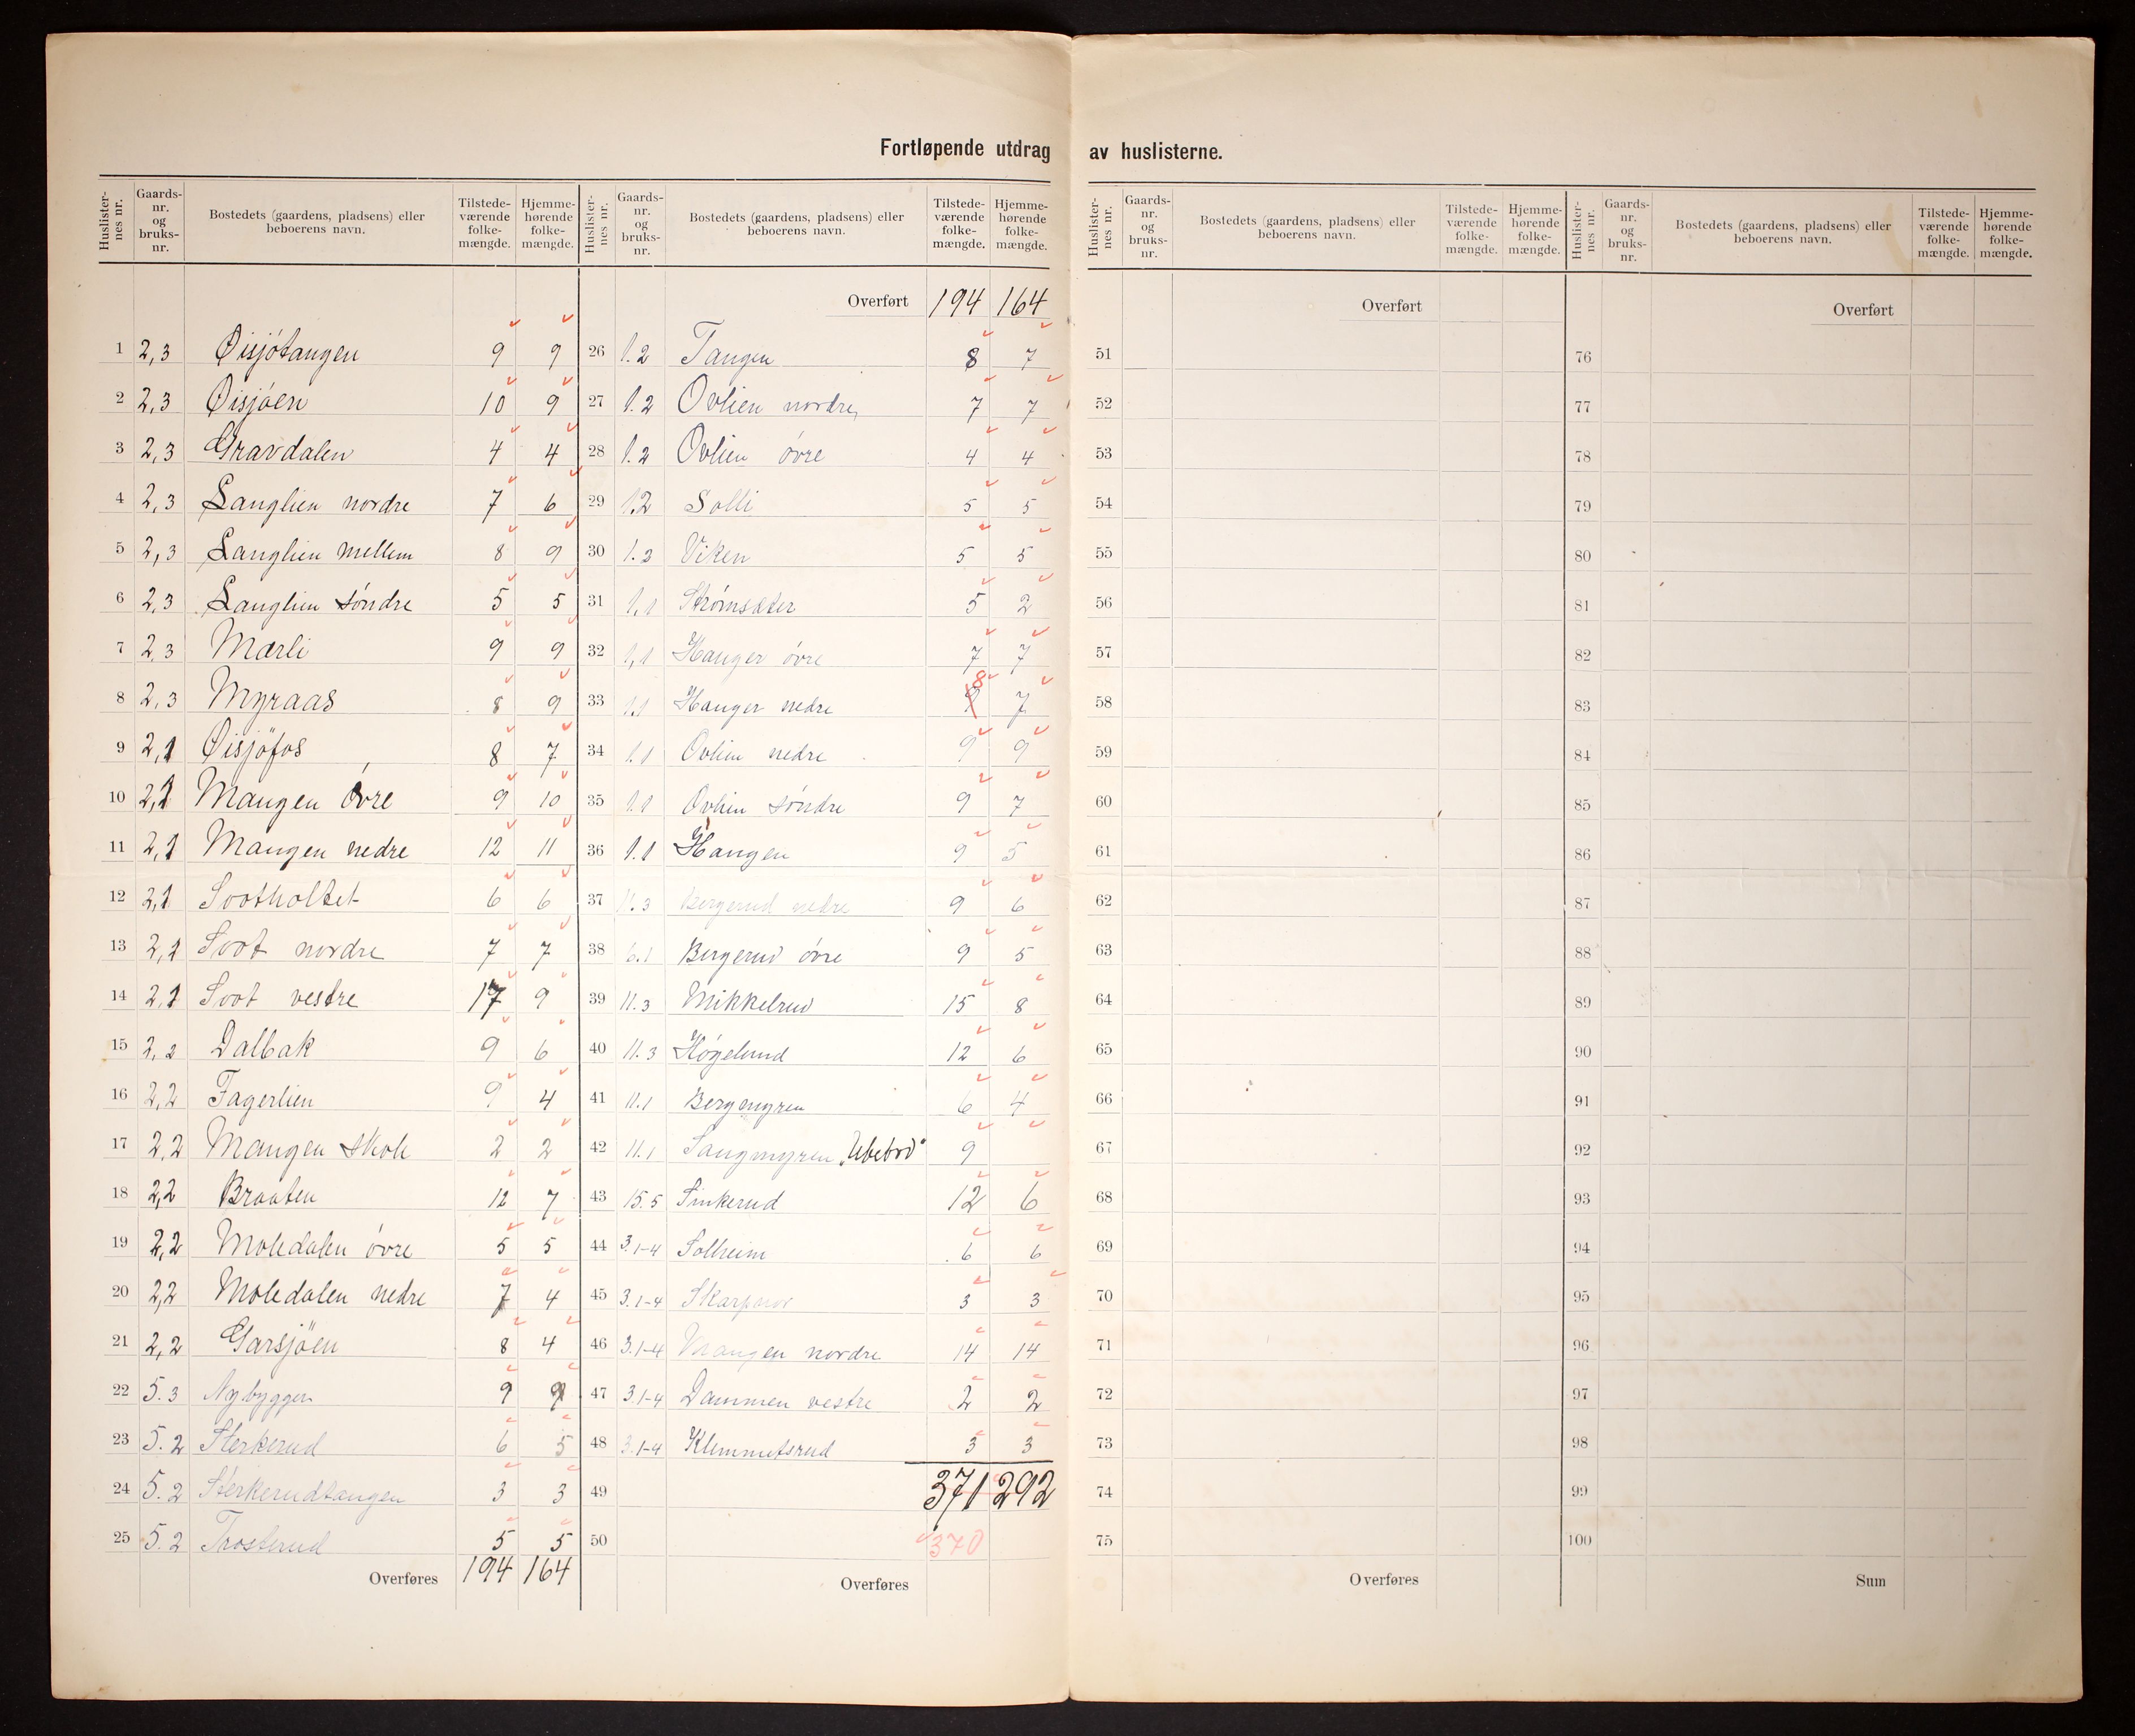 Fortløpende utdrag av huslisterne.
Huslisternes nr. Gaards-nr. og bruks-nr. Bostedets (gaardens, pladsens) eller beboerens navn. Tilstede-værende folke-mængde. Hjemme-hørende folke-mængde.
1 2,3 Øisjötangen 9 9
2 2,3 Øisjöen 10 9
3 2,3 Gravdalen 4 4
4 2,3 Langlien nordre 7 6
5 2,3 Langlien mellem 8 9
6 2,3 Langlien söndre 5 5
7 2,3 Mærli 9 9
8 2,3 Myraas 8 9
9 2,1 Øisjöfos 8 7
10 2,1 Mangen Övre 9 10
11 2,1 Mangen nedre 12 11
12 2,1 Sootholtet 6 6
13 2,1 Soot nordre 7 7
14 2,1 Soot vestre 17 9
15 2,2 Dalbak 9 6
16 2,2 Fagerlien 9 4
17 2,2 Mangen skole 2 2
18 2,2 Braaten 12 7
19 2,2 Moledalen övre 5 5
20 2,2 Moledalen nedre 7 4
21 2,2 Garsjöen 8 4
22 5.3 Nybyggen 9 9
23 5.2 Sterkerud 6 5
24 5.2 Sterkerudtangen 3 3
25 5.2 Trosterud 5 5
Overføres 194 164
Huslisternes nr. Gaards-nr. og bruks-nr. Bostedets (gaardens, pladsens) eller beboerens navn. Tilstede-værende folke-mængde. Hjemme-hørende folke-mængde.
Overført 194 164
26 1.2 Tangen 8 7
27 1.2 Ovlien nordre 7 7
28 1.2 Ovlien övre 4 4
29 1.2 Solli 5 5
30 1.2 Viken 5 5
31 1,1 Strömsæter 5 2
32 1,1 Hanger övre 7 7
33 1.1 Hanger nedre 8 7
34 1.1 Ovlien nedre 9 9
35 1.1 Ovlien söndre 9 7
36 1.1 Hangen 9 5
37 11.3 Bergerud nedre 9 6
38 6.1 Bergerud övre 9 5
39 11.3 Mikkelrud 15 8
40 11.3 Høgelund 12 6
41 11.1 Bergmyren 6 4
42 11.1 Langmyren „Ubebod" 9
43 15.5 Sinkerud 12 6
44 3.1-4 Solheim 6 6
45 3.1-4 3 3
46 3.1-4 Mangen nordre 14 14
47 3.1-4 Dammen vestre 2 2
48 3.1-4 Klemmetsrud 3 3
49 371 292
50 370
Overføres
Huslisternes nr. Gaards-nr. og bruks-nr. Bostedets (gaardens, pladsens) eller beboerens navn. Tilstede-værende folke-mængde. Hjemme-hørende folke-mængde.
Overført
51
52
53
54
55
56
57
58
59
60
61
62
63
64
65
66
67
68
69
70
71
72
73
74
75
Overføres
Huslisternes nr. Gaards-nr. og bruks-nr. Bostedets (gaardens, pladsens) eller beboerens navn. Tilstede-værende folke-mængde. Hjemme-hørende folke-mængde.
Overført
76
77
78
79
80
81
82
83
84
85
86
87
88
89
90
91
92
93
94
95
96
97
98
99
100
Sum